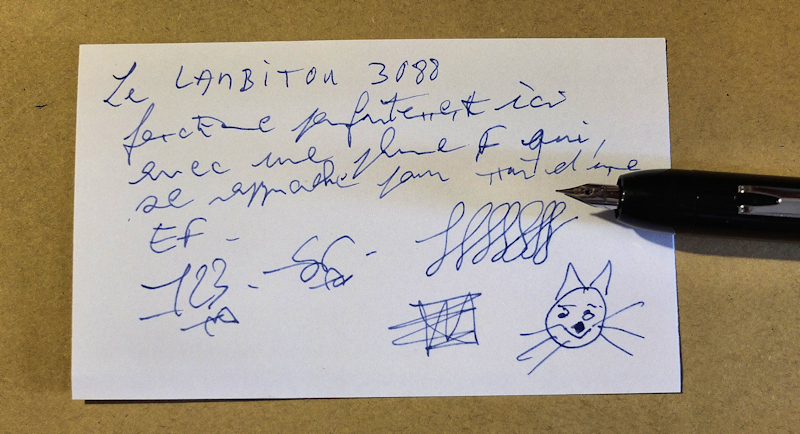 Le LAMBiTOU 3088
fonctionne parfaitement ici
avec une plume F qui,
se rapproche pour moi d'une
EF -
123 -